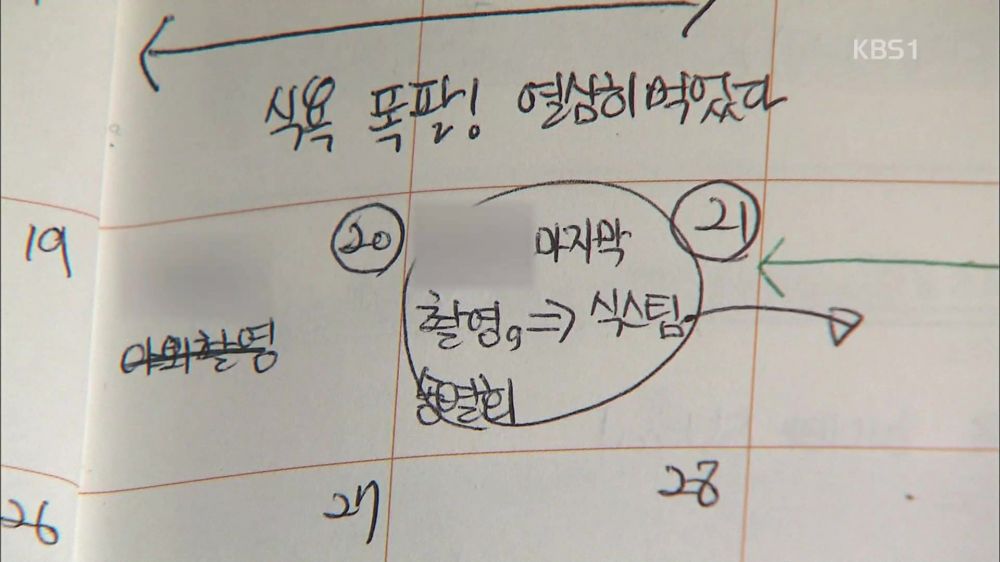 KBS1
식욕 폭팔! 열심히먹었다
19
20
마지막
21
야외촬영
촬영, ⇒ 식스팀
송별회
26
27
28